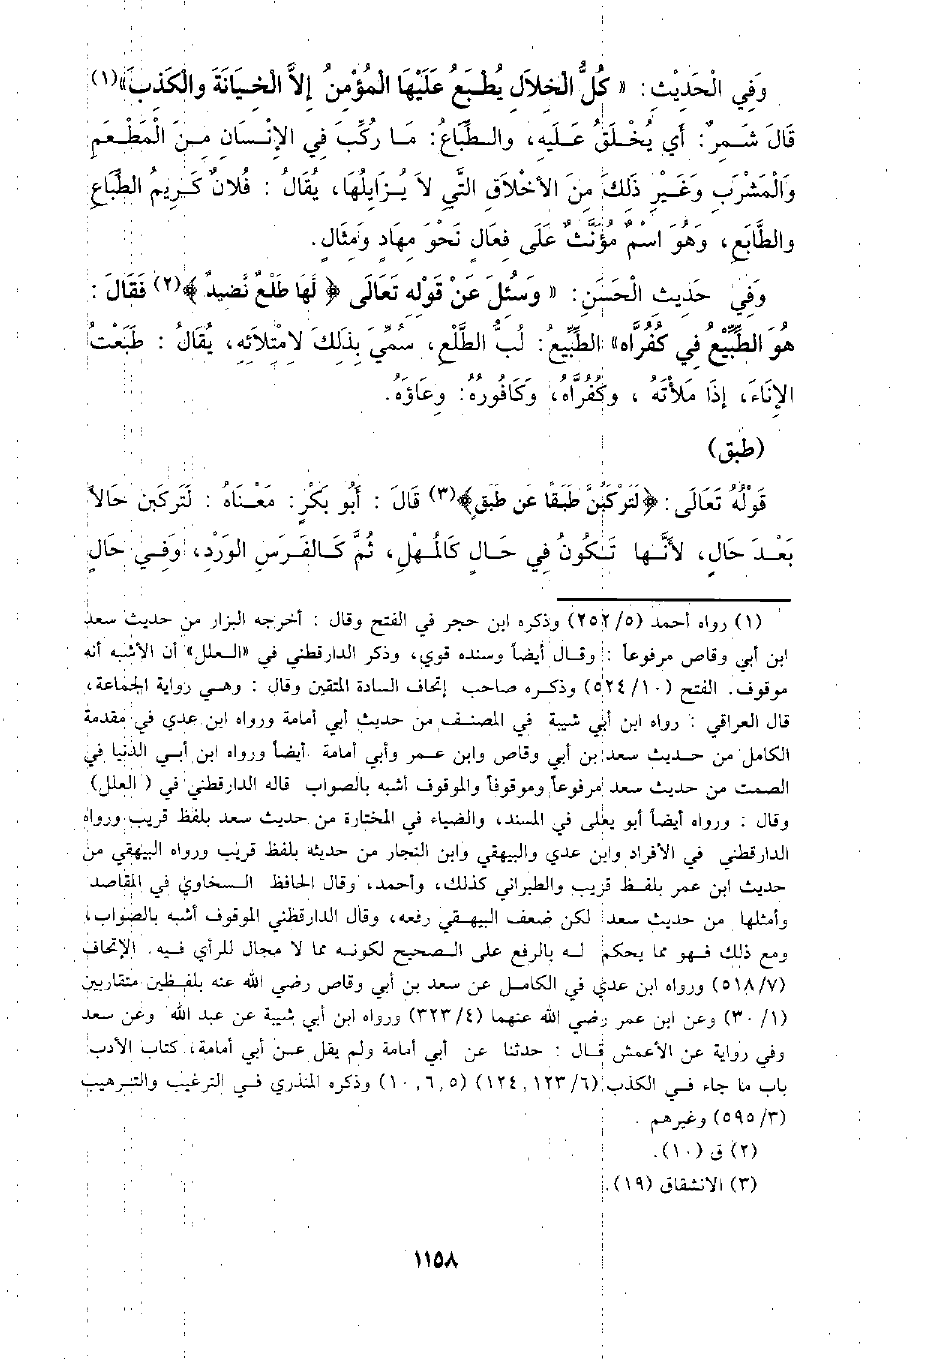 وَفِي الْحَدِيْثِ: « كُلُّ الْخِلاَلِ يُطْبَعُ عَلَيْهَا الْمُؤْمِنُ إِلاَّ الْخِيَانَةَ وَالْكَذِبَ»(١)
قَالَ شَمِرٌ: أَي يُخْلَقُ عَلَيهِ، والطِّبَاعُ: مَا رُكِّبَ فِي الإِنْسَانِ مِنَ الْمَطْعَمِ
وَالْمَشْرَبِ وَغَيْرِ ذَلِكَ مِنَ الأَخْلاَقِ التَّيِ لاَ يُزَايِلُهَا، يُقَالُ : فُلاَنٌ كَرِيمُ الطِّبَاعِ
والطَّابَعِ، وَهُوَ اسْمٌ مُؤَنَّثٌ عَلَى فِعَالٍ نَحْوَ مِهَادٍ وَمِثَالٍ.
وَفِي حَدِيثِ الْحَسَنِ: « وَسُئِلَ عَنْ قَوْلِهِ تَعَالَى ﴿ لَهَا طَلْعٌ نَّضِيدٌ ﴾(٢) فَقَالَ :
هُوَ الطِّبِّيْعُ فِي كُفُرَّاه» الطِّبِّيعُ: لُبُّ الطَّلْعِ، سُمِّيَ بِذَلِكَ لامْتِلائِهِ، يُقَالُ : طَبَعْتُ
الإِنَاءَ، إِذَا مَلأْتَهُ ، وكُفُرَّاهُ، وَكَافُورُهُ: وِعَاؤَهُ.
(طبق)
قَوْلُهُ تَعَالَى: ﴿لَتَرْكَبُنَّ طَبَقًا عَن طَبَقٍ﴾(٣) قَالَ : أَبُو بَكْرٍ: مَعْنَاهُ : لَتَرْكَبن حَالاً
بَعْدَ حَالٍ، لأَنَّها تَكُونُ فِي حَالٍ كَالمُهْلِ، ثُمَّ كَالفَرَسِ الوَرْدِ، وَفِي حَالٍ
(١) رواه أحمد (٢٥٢/٥) وذكره ابن حجر في الفتح وقال : أخرجه البزار من حديث سعد
ابن أبي وقاص مرفوعاً : وقال أيضاً وسنده قوي، وذكر الدارقطني في «العلل» أن الأشبه أنه
موقوف. الفتح (٥٢٤/١٠) وذكره صاحب إتحاف السادة المتقين وقال : وهي رواية الجماعة،
قال العراقي : رواه ابن أبي شيبة في المصنف من حديث أبي أمامة ورواه ابن عدي في مقدمة
الكامل من حديث سعد بن أبي وقاص وابن عمر وأبي أمامة أيضاً ورواه ابن أبي الدنيا في
الصمت من حديث سعد مرفوعاً وموقوفاً والموقوف أشبه بالصواب قاله الدارقطني في ( العلل)
وقال : ورواه أيضاً أبو يعلى في المسند، والضياء في المختارة من حديث سعد بلفظ قريب ورواه
الدارقطني في الأفراد وابن عدي والبيهقي وابن النجار من حديثه بلفظ قريب ورواه البيهقي من
حديث ابن عمر بلفظ قريب والطبراني كذلك، وأحمد، وقال الحافظ السخاوي في المقاصد
وأمثلها من حديث سعد لكن ضعف البيهقي رفعه، وقال الدارقطني الموقوف أشبه بالصواب،
ومع ذلك فهو مما يحكم له بالرفع على الصحيح لكونه مما لا مجال للرأي فيه. الإتحاف
(٥١٨/٧) ورواه ابن عدي في الكامل عن سعد بن أبي وقاص رضي الله عنه بلفظين متقاربين
(٣٠/١) وعن ابن عمر رضي الله عنهما (٣٢٣/٤) ورواه ابن أبي شيبة عن عبد الله وعن سعد
وفي رواية عن الأعمش قال : حدثنا عن أبي أمامة ولم يقل عن أبي أمامة، كتاب الأدب
باب ما جاء في الكذب (١٢٣/٦، ١٢٤) (٥، ٦، ١٠) وذكره المنذري في الترغيب والترهيب
(٥٩٥/٣) وغيرهم .
(٢) ق (١٠).
(٣) الانشقاق (١٩).
١١٥٨